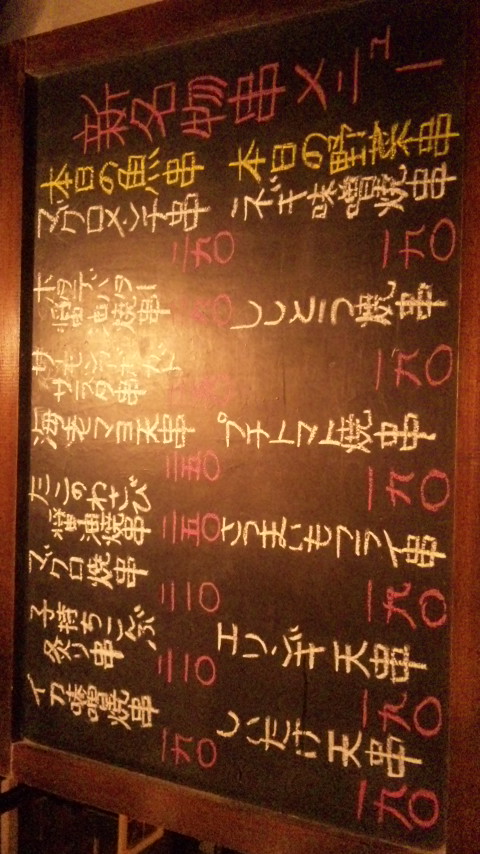 新名物串メニュー
本日の野菜串
ネギ味噌焼串
一九〇
ししとう焼串
一九〇
プチトマト焼串
一九〇
さつまいもフライ串
一九〇
エリンギ天串
一九〇
しいたけ天串
一九〇
本日の魚串
ズワロメンチ串
二九〇
ホタテバター
醤油焼串
サーモンアボカド
サラダ串
海老マヨ天串
二五〇
たこのわさび
醤油焼串
二五〇
ズワロ焼串
二一〇
子持ちこんぶ
炙り串
二一〇
イカ味噌焼串
一九〇